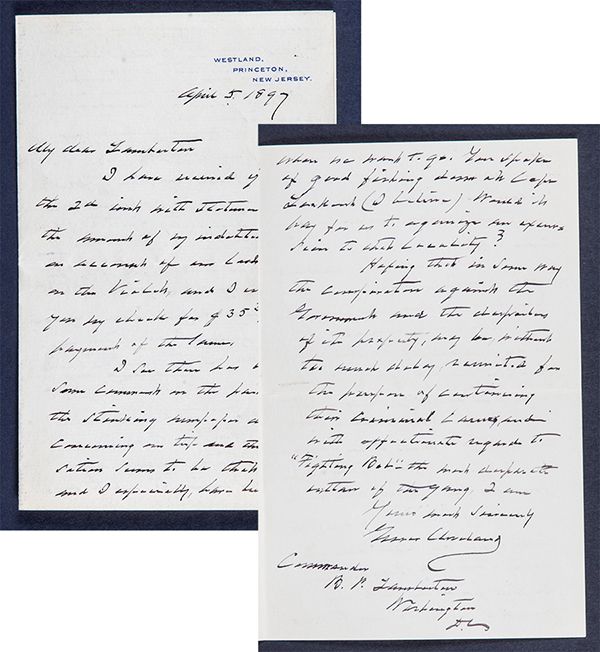 WESTLAND,
PRINCETON,
NEW JERSEY.
April 5. 1897
My dear Lamberton
I have received y
the 2d inst with statem
the amount of my indebted
on account of our
on the Violet, and I
you my check for $35
payment of the same.
I see there has
some comment on the part
the stinking newspaper
concerning our trip and the
sation seems to be that
and I especially, have be
when we want to go. You spoke
of good fishing down at Cape
Lookout (I believe) Would it
pay for us to organize an excur-
sion to that locality?
Hoping that in some way
the conspiration against the
Government and the despoilers
of its property, may be without
too much delay reunited for
the purpose of continuing
their criminal career, and
with affectionate regards to
"Fighting Bob" the most desperate
 of the gang, I am
Yours most sincerely
Grover Cleveland
Commander
B. P. Lamberton
Washington
D.C.